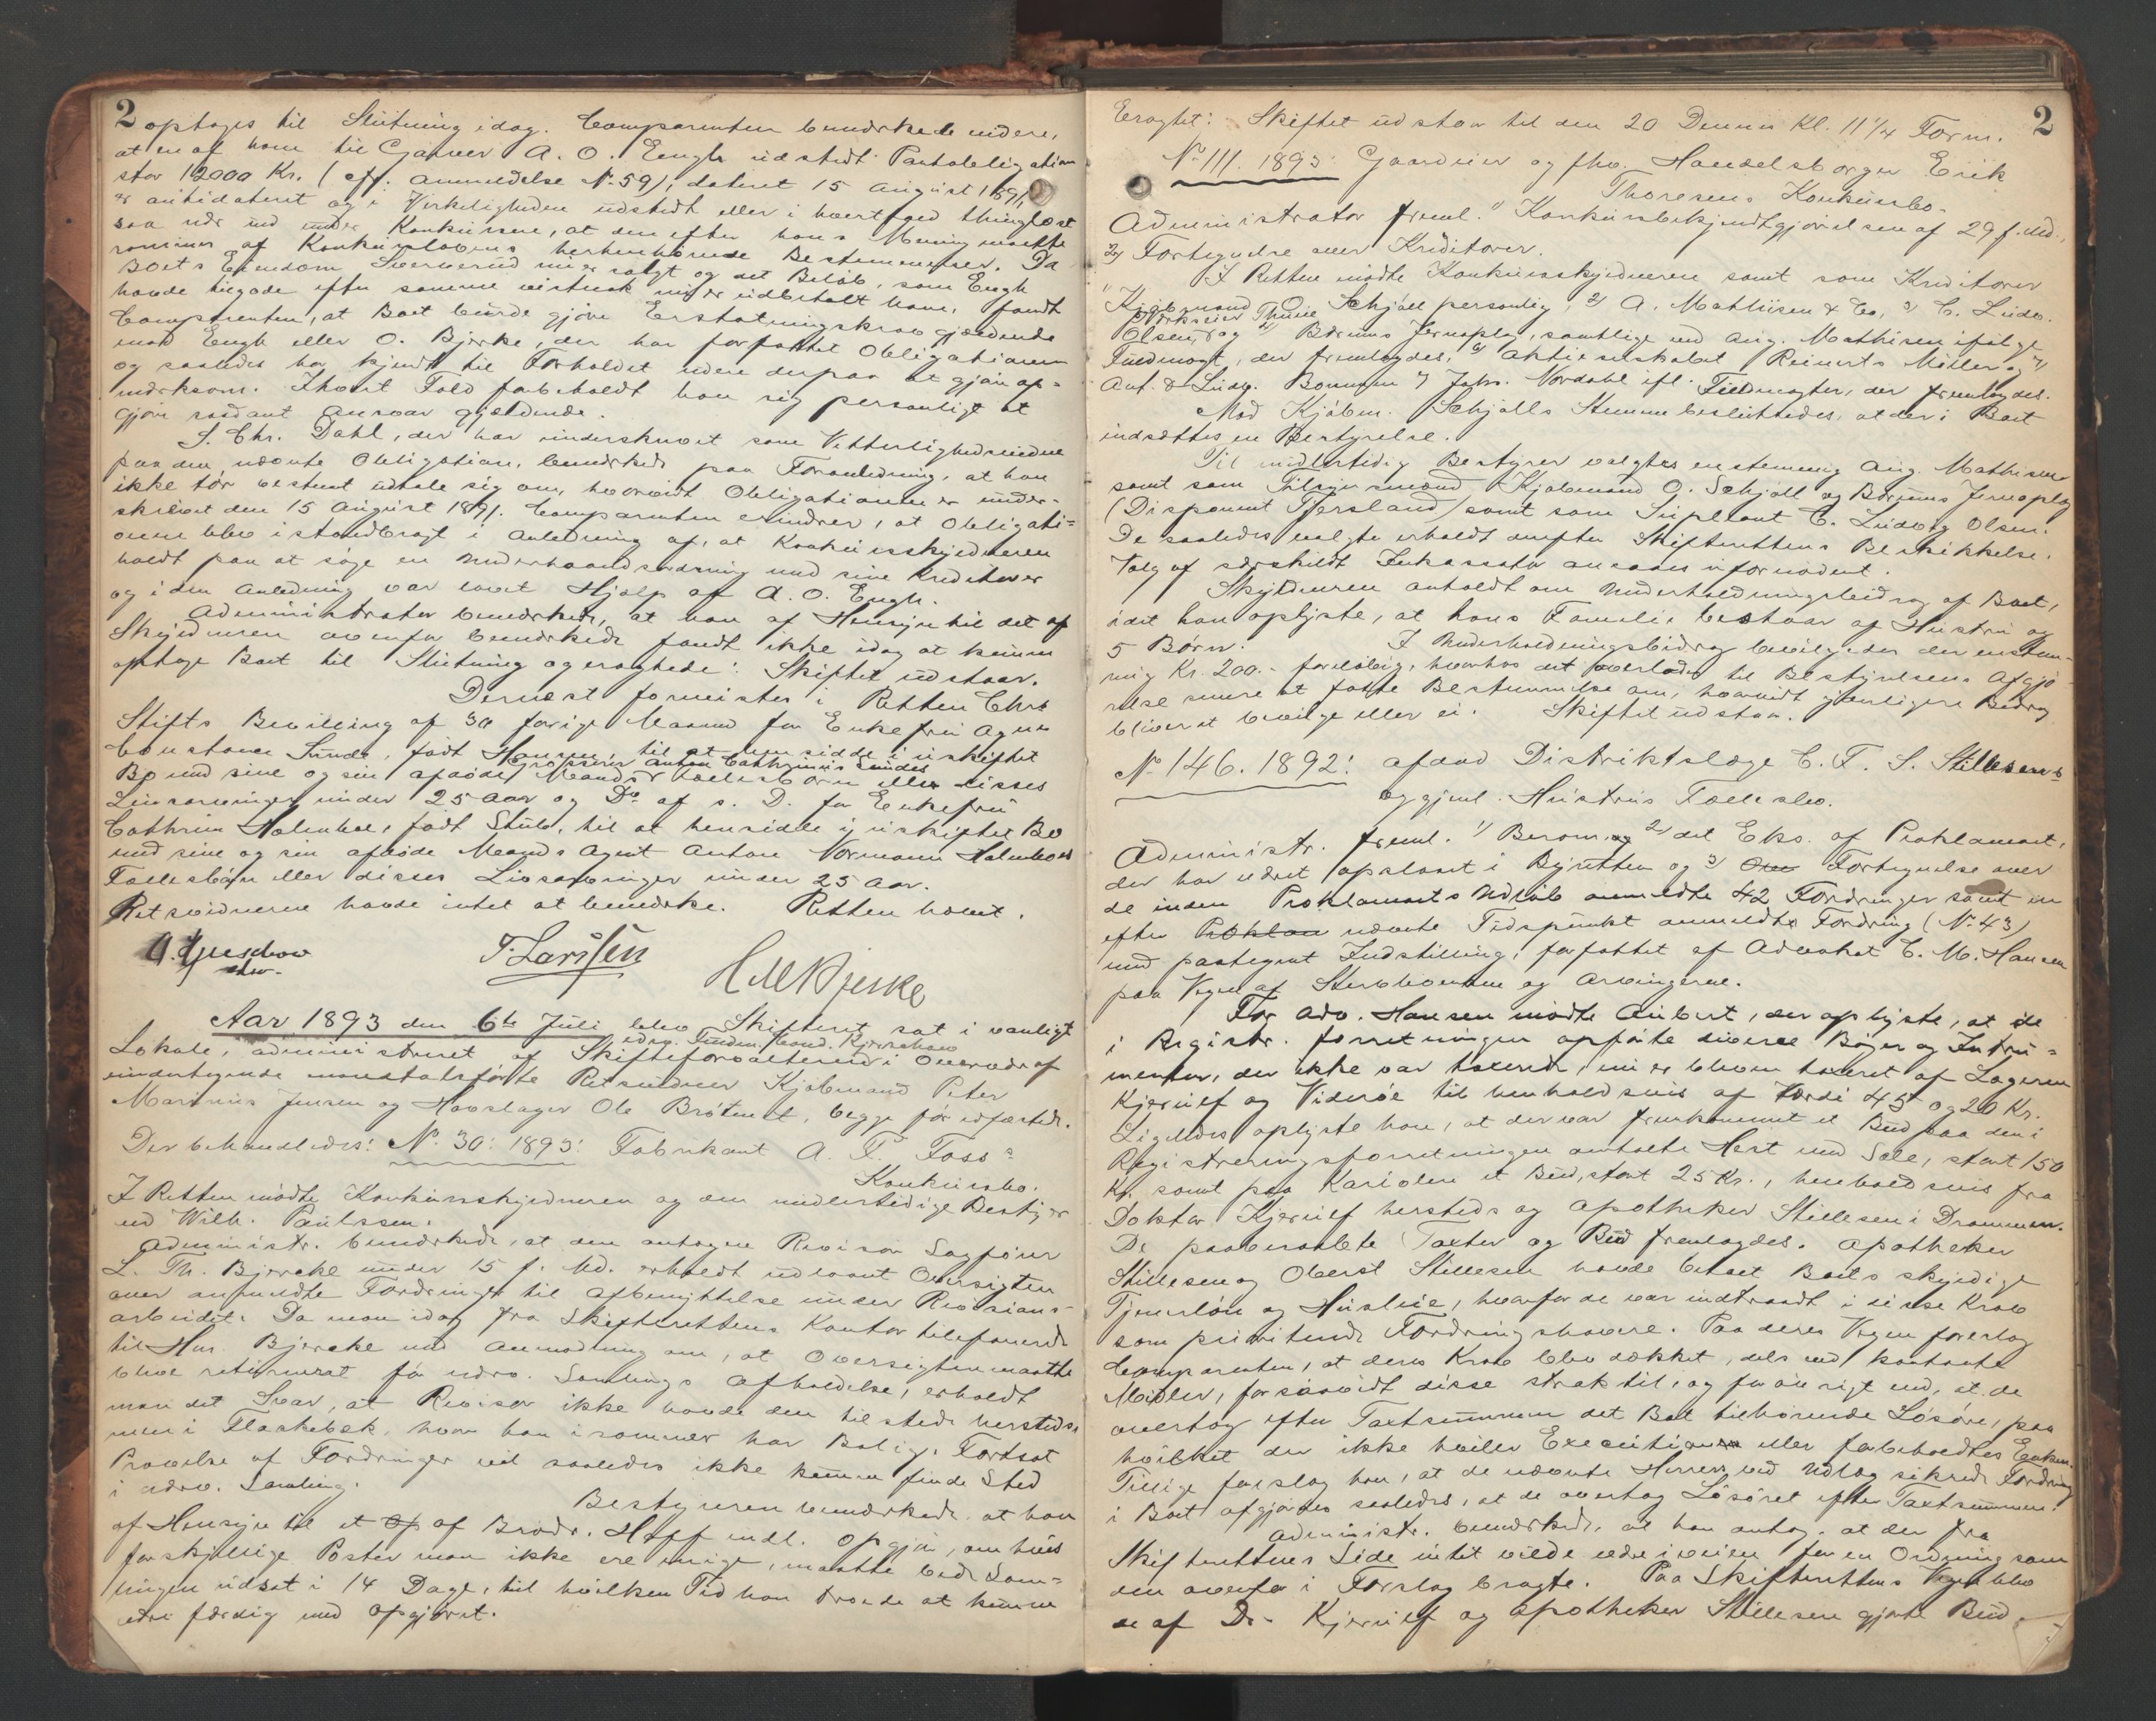 2
optages til Slutning idag. Comparenten bemærkede videre,
at en af ham til Gaardeier A. O. Engh udstedt Pantobligation
stor 12000 Kr. (cfr. Anmeldelse N. 59), dateret 15 August 1891,
er antidateret og i Virkeligheden udstedt eller i hvertfald thinglæst
saa nær ind under Konkursen, at den efter hans Mening maatte
rammes af Konkurslovens herhenhørende Bestemmelser. Da
Boets Eiendom nu er solgt og det Beløb, som Engh
havde tilgode efter samme nu er udbetalt ham, fandt
Comparenten, at Boet burde gjøre Erstatningskrav gjældende
mod Engh eller O. Bjerke, der har forfattet Obligationen
og saaledes har kjendt til Forholdet uden derpaa at gjøre op-
mærksom. Ihvert Fald forbeholdt han sig personligt at
gjøre saadant Ansvar gjældende.
S. Chr. Dahl, der har underskrevet som Vitterlighedsvidne
paa den nævnte Obligation, bemærkede paa Foranledning, at han
ikke tør bestemt udtale sig om, hvorvidt Obligationen er under-
skrevet den 15 August 1891. Comparenten erindrer, at Obligati-
onen blev istandbragt i Anledning af, at Konkursskyldneren
holdt paa at søge en Underhaandsordning med sine Kreditorer
og i den Anledning var lovet Hjælp af A. O. Engh.
Administrator bemærkede, at han af Hensyn til det af
Skyldneren ovenfor bemærkede fandt ikke idag at kunne
optage Boet til Slutning og eragtede: Skiftet udstaar.
Dernæst forevistes i Retten Chra
Stifts Bevilling af 30 forrige Maaned for Enkefru Agnes
Constance Sunde, født Hansen, til at hensidde i uskiftet
Grosserer Anton Cathrinus Sundes
Bo med sine og sin afdøde Mands Fællesbørn eller disses
Livsarvinger under 25 Aar og Do af s. D. for Enkefru
Cathrine Holmboe, født Stub, til at hensidde i uskiftet Bo
med sine og sin afdøde Mands Agent Anton Normann Holmboes
Fællesbørn eller disses Livsarvinger under 25 Aar.
Retsvidnerne havde intet at bemærke. Retten hævet.
T. Larssen
Aar 1893 den 6te Juli blev Skifteret sat i vanligt
Lokale, administreret af Skifteforvalteren i Overvær af
undertegnede Retsvidner Kjøbmand Peter
Marinius Jensen og Hovslager Ole Bråtene, begge før edfæstede.
Der behandledes: No. 30. 1893: Fabrikant A. T. Foss's
Konkursbo.
I Retten mødte Konkursskyldneren og den midlertidige Bestyrer
ved Wilh. Paulssen.
Administr. bemærkede, at den antagne Revisor Sagfører
L. Th. Bjercke under 15 f. Md. erholdt udlaant Oversigten
over anmeldte Fordringer til Afbenyttelse under Revisions-
arbeidet. Da man idag fra Skifterettens Kontor telefonerede
til Hr. Bjercke med Anmodning om, at Oversigten maatte
blive returneret før nærv. Samlings Afholdelse, erholdt
man det Svar, at Revisor ikke havde den tilstede hersteds,
men i Flaskebæk, hvor han i sommer har Bolig. Fortsat
Prøvelse af Fordringer vil saaledes ikke kunne finde Sted
i nærv. Samling.
Bestyreren bemærkede, at han
af Hensyn til et Op af Brødr. Hoff indl. Opgjør, om hvis
forskjellige Poster man ikke er enige, maatte bede Sam-
lingen udsat i 14 Dage, til hvilken Tid han troede at kunne
være færdig med Opgjøret.

2
Eragtet: Skiftet udstaar til den 20 Dennes Kl. 11 1/4 Form.
No 111. 1893: Gaardeier og fhv. Handelsborger Erik
Thoresens Konkursbo.
Administrator freml. 1) Konkursbekjendtgjørelsen af 29 f. Md.,
2) Fortegnelse over Kreditorer.
I Retten mødte Konkursskyldneren samt som Kreditorer
1) Kjøbmand O. Schjøll personlig, 2) A. Mathiesen & Co, 3) C. Ludv.
Olsen, og Bærums Jernoplag, samtlige ved Aug. Mathisen ifølge
Fuldmagt, der fremlagdes, Aktieselskabet Reinerts Møller og
Ant. & Ludv. Bonnum Johs. Nordahl ifl. Fuldmagter, der fremlagdes.
Mod Kjøbm. Schjølls Stemme besluttedes, at der i Boet
indsættes en Bestyrelse.
Til midlertidig Bestyrer valgtes enstemmig Aug. Mathisen
samt som Tilsynsmænd Kjøbmand O. Schjøll og Bærums Jernoplag
(Disponent Fjersland) samt som Supleant C. Ludvig Olsen.
De saaledes valgte erholdt derefter Skifterettens Beskikkelse.
Valg af særskildt Inkassator ansaaes ufornødent.
Skyldneren anholdt om Underholdningsbidrag af Boet,
idet han oplyste, at hans Familie bestaar af Hustru og
5 Børn. I Underholdningsbidrag bevilgedes der enstem-
mig Kr. 200.- foreløbig, hvorhos det overlodes til Bestyrelsens Afgjø-
relse senere at fatte Bestemmelse om, hvorvidt yderligere Bidrag
bliver at bevilge eller ei. Skiftet udstaar.
No 146. 1892: Afdød Distriktslæge C. F. S. Stillesens
og gjenl. Hustrus Fællesbo.
Administr. freml. 1) Berom. og 2) det Eks. af Proklamaet,
der har været opslaaet i Byretten og 3) Fortegnelse over
de inden Proklamaets Udløb anmeldte 42 Fordringer samt en
efter nævnte Tidspunkt anmeldte Fordring (No 43)
med paategnet Indstilling, forfattet af Advokat C. M. Hansen
paa Vegne af Sterbboenken og Arvingerne.
For Adv. Hansen mødte Aubert, der oplyste, at de
i Registr. forretningen opførte diverse Bøger og Instru-
menter, der ikke var taxerede, nu er bleven taxeret af Lægerne
Kjerulf og Viderøe til henholdsvis af Værdi 45 og 20 Kr.
Ligeledes oplyste han, at der var fremkommet et Bud paa den i
Registreringsforretningen anførte Hest med Sæle, stort 150
Kr. samt paa Kariolen et Bud, stort 25 Kr., henholdsvis fra
Doktor Kjerulf hersteds og Apotheker Stillesen i Drammen.
De paaberaabte Taxter og Bud fremlagdes. Apotheker
Stillesen og Oberst Stillesen havde betalt Boets skyldige
Tjenerløn og Husleie, hvorfor de var indtraadt i disse Krav
som privilerede Fordringshavere. Paa deres Vegne foreslog
Comparenten, at deres Krav blev dækket, dels ved kontante
Midler, forsaavidt disse strak til, og forøvrigt ved, at de
overtog efter Taxtsummen det Boet tilhørende Løsøre, paa
hvilket der ikke hviler Execution eller forbeholdtes Enken.
Tillige foreslog han, at de nævnte Herrers ved Udlæg sikrede Fordring
i Boet afgjøres saaledes, at de overtog Løsøret efter Taxtsummen.
Administr. bemærkede, at han antog, at der fra
Skifterettens Side intet vilde være i veien for en Ordning som
den ovenfor i Forslag bragte. Paa Skifterettens Vegne blev
de af Dr. Kjerulf og Apotheker Stillesen gjorte Bud